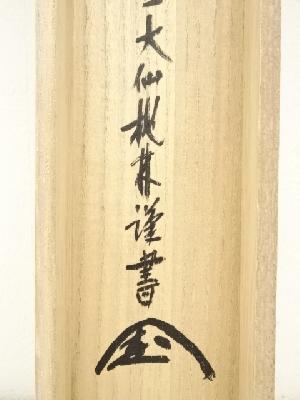 大仙桃林謹書